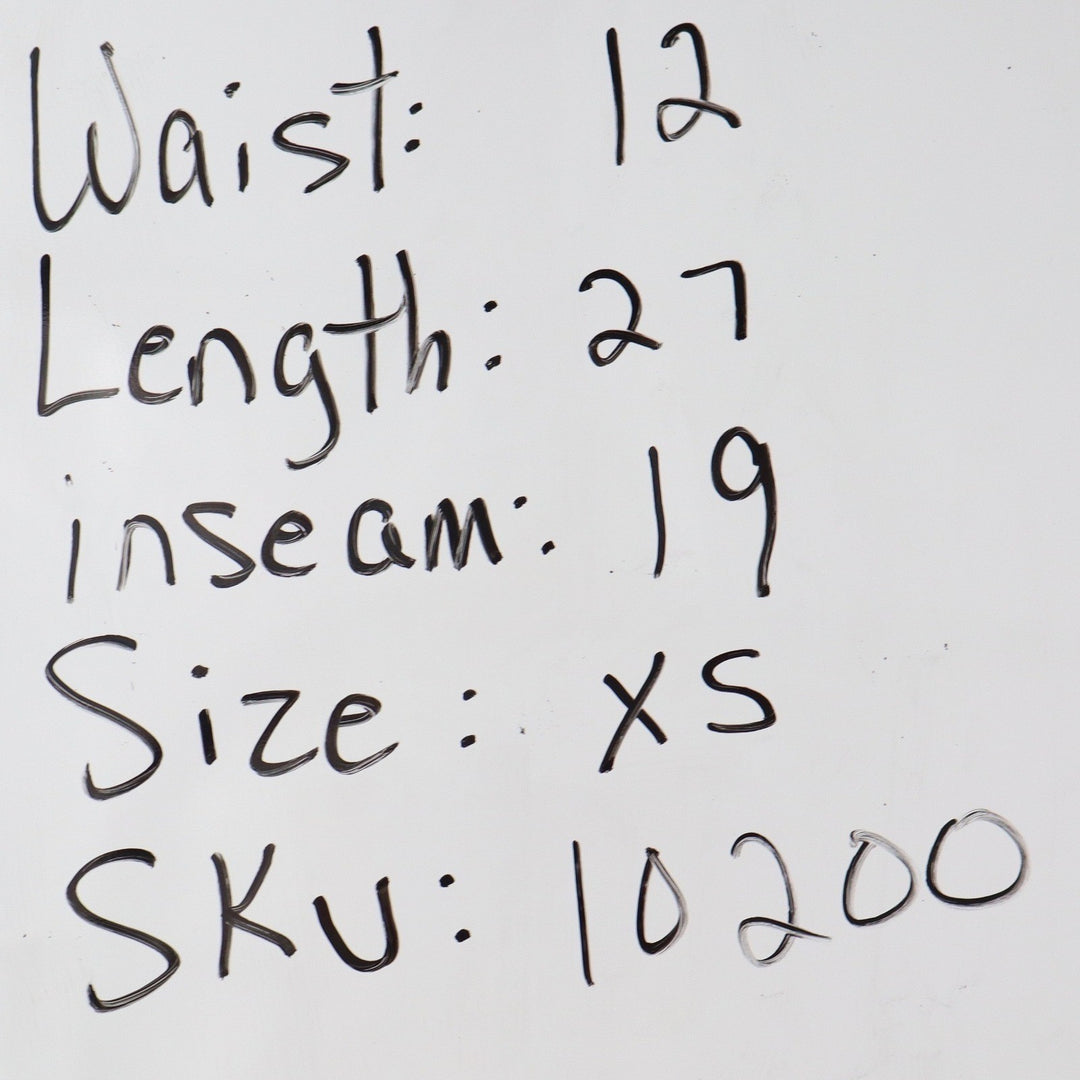 Waist: 12
Length: 27
inseam: 19
Size: XS
SKU: 10200